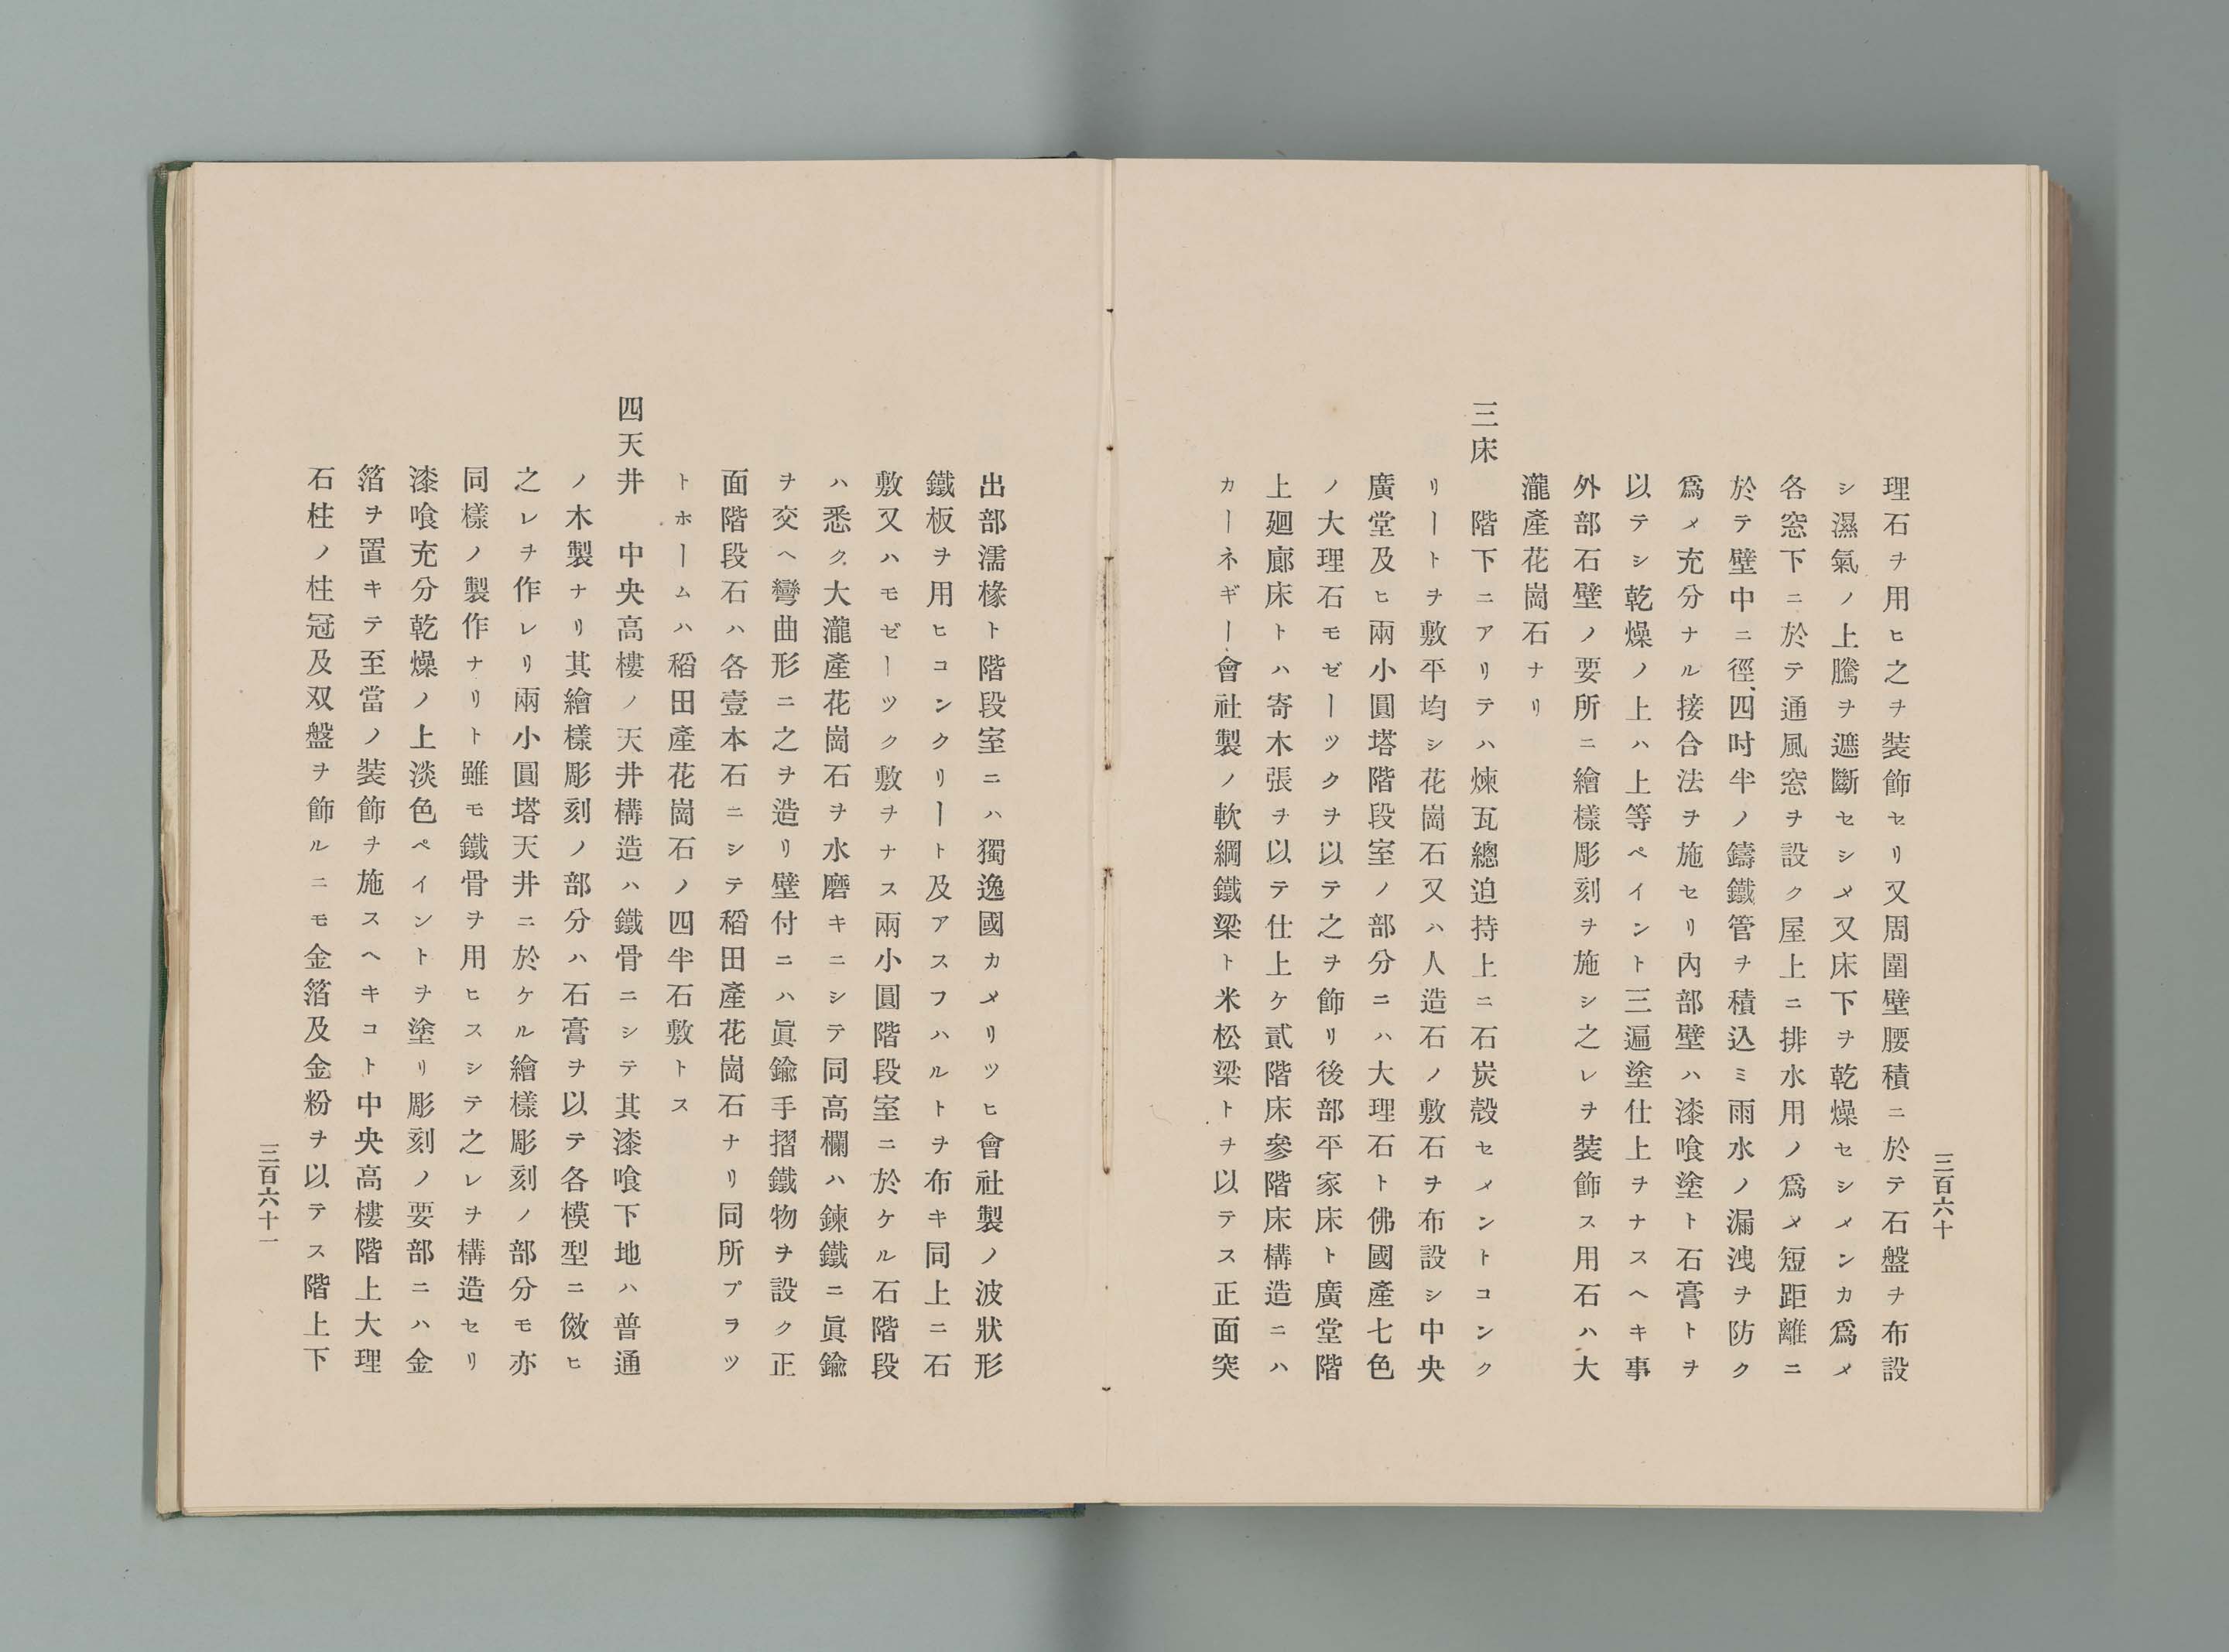 理石ヲ用ヒ之ヲ装飾セリ又周圍壁腰積ニ於テ石盤ヲ布設
シ濕氣ノ上騰ヲ遮斷セシメ又床下ヲ乾燥セシメンカ爲メ
各窓下ニ於テ通風窓ヲ設ク屋上ニ排水用ノ爲メ短距離ニ
於テ壁中ニ徑、四吋半ノ鑄鐵管ヲ積込ミ雨水ノ漏洩ヲ防ク
爲メ充分ナル接合法ヲ施セリ內部壁ハ漆喰塗ト石膏トヲ
以テシ乾燥ノ上ハ上等ペイント三遍塗仕上ヲナスヘキ事
外部石壁ノ要所ニ繪樣彫刻ヲ施シ之レヲ装飾ス用石ハ大
瀧產花崗石ナリ
三床　階下ニアリテハ煉瓦總迫持上ニ石炭殼セメントコンク
リートヲ敷平均シ花崗石又ハ人造石ノ敷石ヲ布設シ中央
廣堂及ヒ兩小圓塔階段室ノ部分ニハ大理石ト佛國產七色
ノ大理石モゼーツクヲ以テ之ヲ飾リ後部平家床ト廣堂階
上廻廊床トハ寄木張ヲ以テ仕上ケ貳階床參階床構造ニハ
カーネギー會社製ノ軟綱鐵梁ト米松梁トヲ以テス正面突
三百六十
出部濡椽ト階段室ニハ獨逸國カメリツヒ會社製ノ波狀形
鐵板ヲ用ヒコンクリート及アスフハルトヲ布キ同上ニ石
敷又ハモゼーツク敷ヲナス兩小圓階段室ニ於ケル石階段
ハ悉ク大瀧產花崗石ヲ水磨キニシテ同高欄ハ鍊鐵ニ眞鍮
ヲ交ヘ彎曲形ニ之ヲ造リ壁付ニハ眞鍮手摺鐵物ヲ設ク正
面階段石ハ各壹本石ニシテ稻田產花崗石ナリ同所プラツ
トホームハ稻田產花崗石ノ四半石敷トス
四天井　中央高樓ノ天井構造ハ鐵骨ニシテ其漆喰下地ハ普通
ノ木製ナリ其繪樣彫刻ノ部分ハ石膏ヲ以テ各模型ニ傚ヒ
之レヲ作レリ兩小圓塔天井ニ於ケル繪樣彫刻ノ部分モ亦
同樣ノ製作ナリト雖モ鐵骨ヲ用ヒスシテ之レヲ構造セリ
漆喰充分乾燥ノ上淡色ペイントヲ塗リ彫刻ノ要部ニハ金
箔ヲ置キテ至當ノ装飾ヲ施スヘキコト中央高樓階上大理
石柱ノ柱冠及双盤ヲ飾ルニモ金箔及金粉ヲ以テス階上下
三百六十一